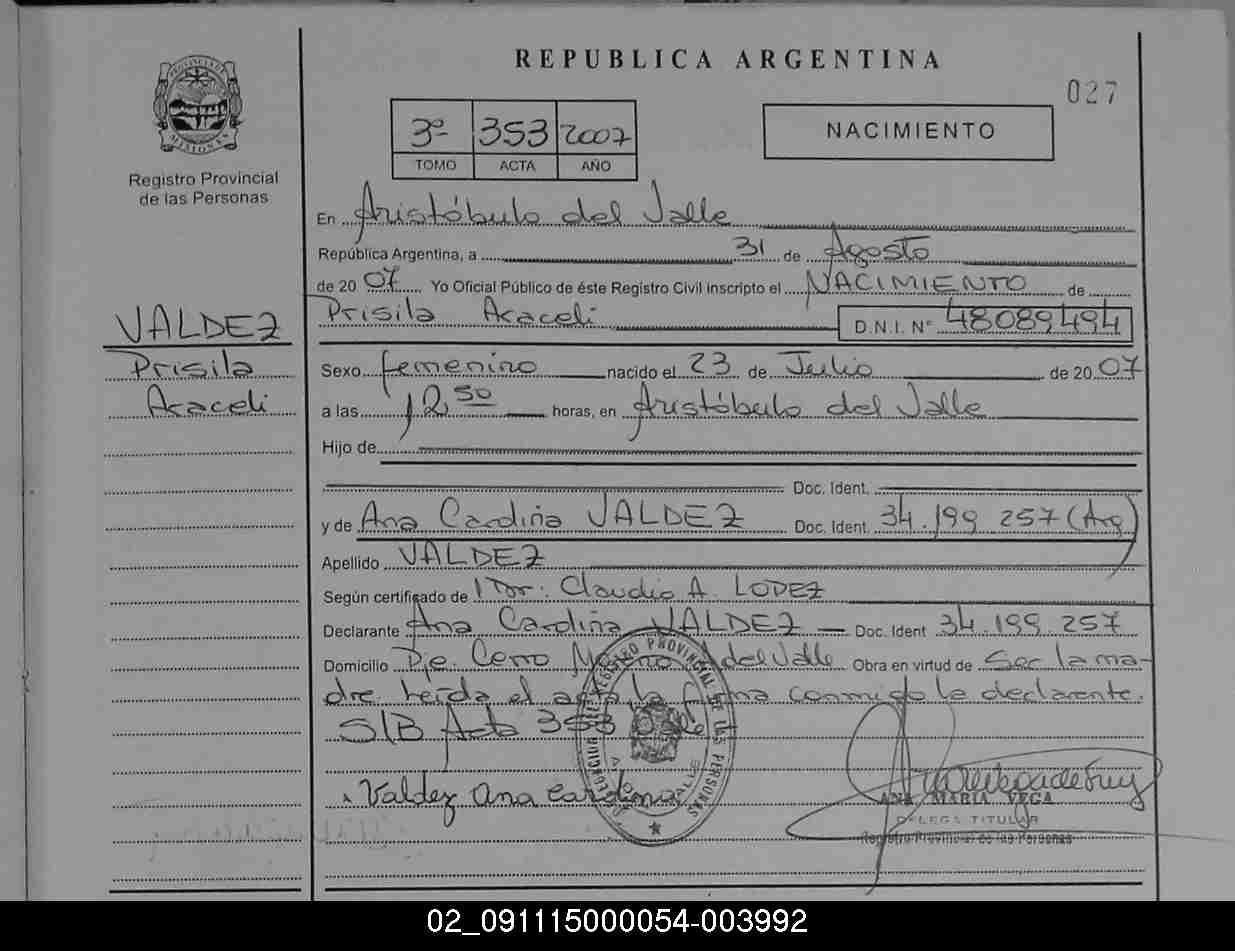 REPUBLICA ARGENTINA
027
PROVINCIA DE MISIONES
Registro Provincial
de las Personas
3º 353 2007
TOMO ACTA AÑO
NACIMIENTO
En Aristóbulo del Valle
República Argentina, a 31 de Agosto
de 20 07 Yo Oficial Público de éste Registro Civil inscripto el NACIMIENTO de
Prisila Araceli D.N.I. Nº 48089494
VALDEZ
Prisila
Araceli
Sexo femenino nacido el 23 de Julio de 20 07
a las 12 50 horas, en Aristóbulo del Valle
Hijo de
Doc. Ident.
y de Ana Caroliña VALDEZ Doc. Ident. 34.199 257 (Arg)
Apellido VALDEZ
Según certificado de Dr. Claudio A. LOPEZ
Declarante Ana Caroliña VALDEZ Doc. Ident 34.199 257
Domicilio Pje. Cerro Moreno A del Valle Obra en virtud de Ser la ma-
dre leída el acta la firma conmigo la declarante.
S/B Acta 353 Vale
Valdez Ana Carolina
ANA MARIA VEGA
DELEGA TITULAR
Registro Provincial de las Personas
REGISTRO PROVINCIAL DE LAS PERSONAS
02_091115000054-003992